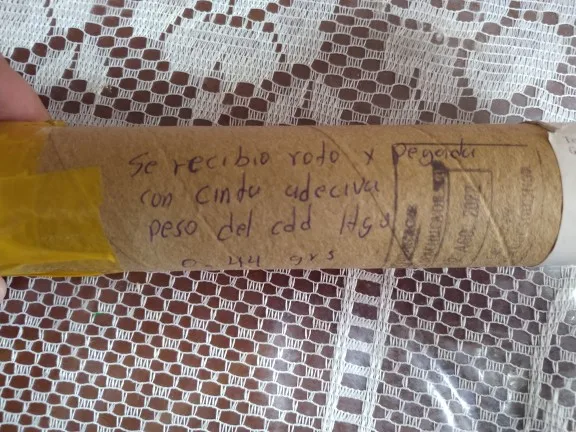 Se recibio roto x pegada
con cinta adeciva
peso del cdd Hgo
0_44 grs
ABR. 2022